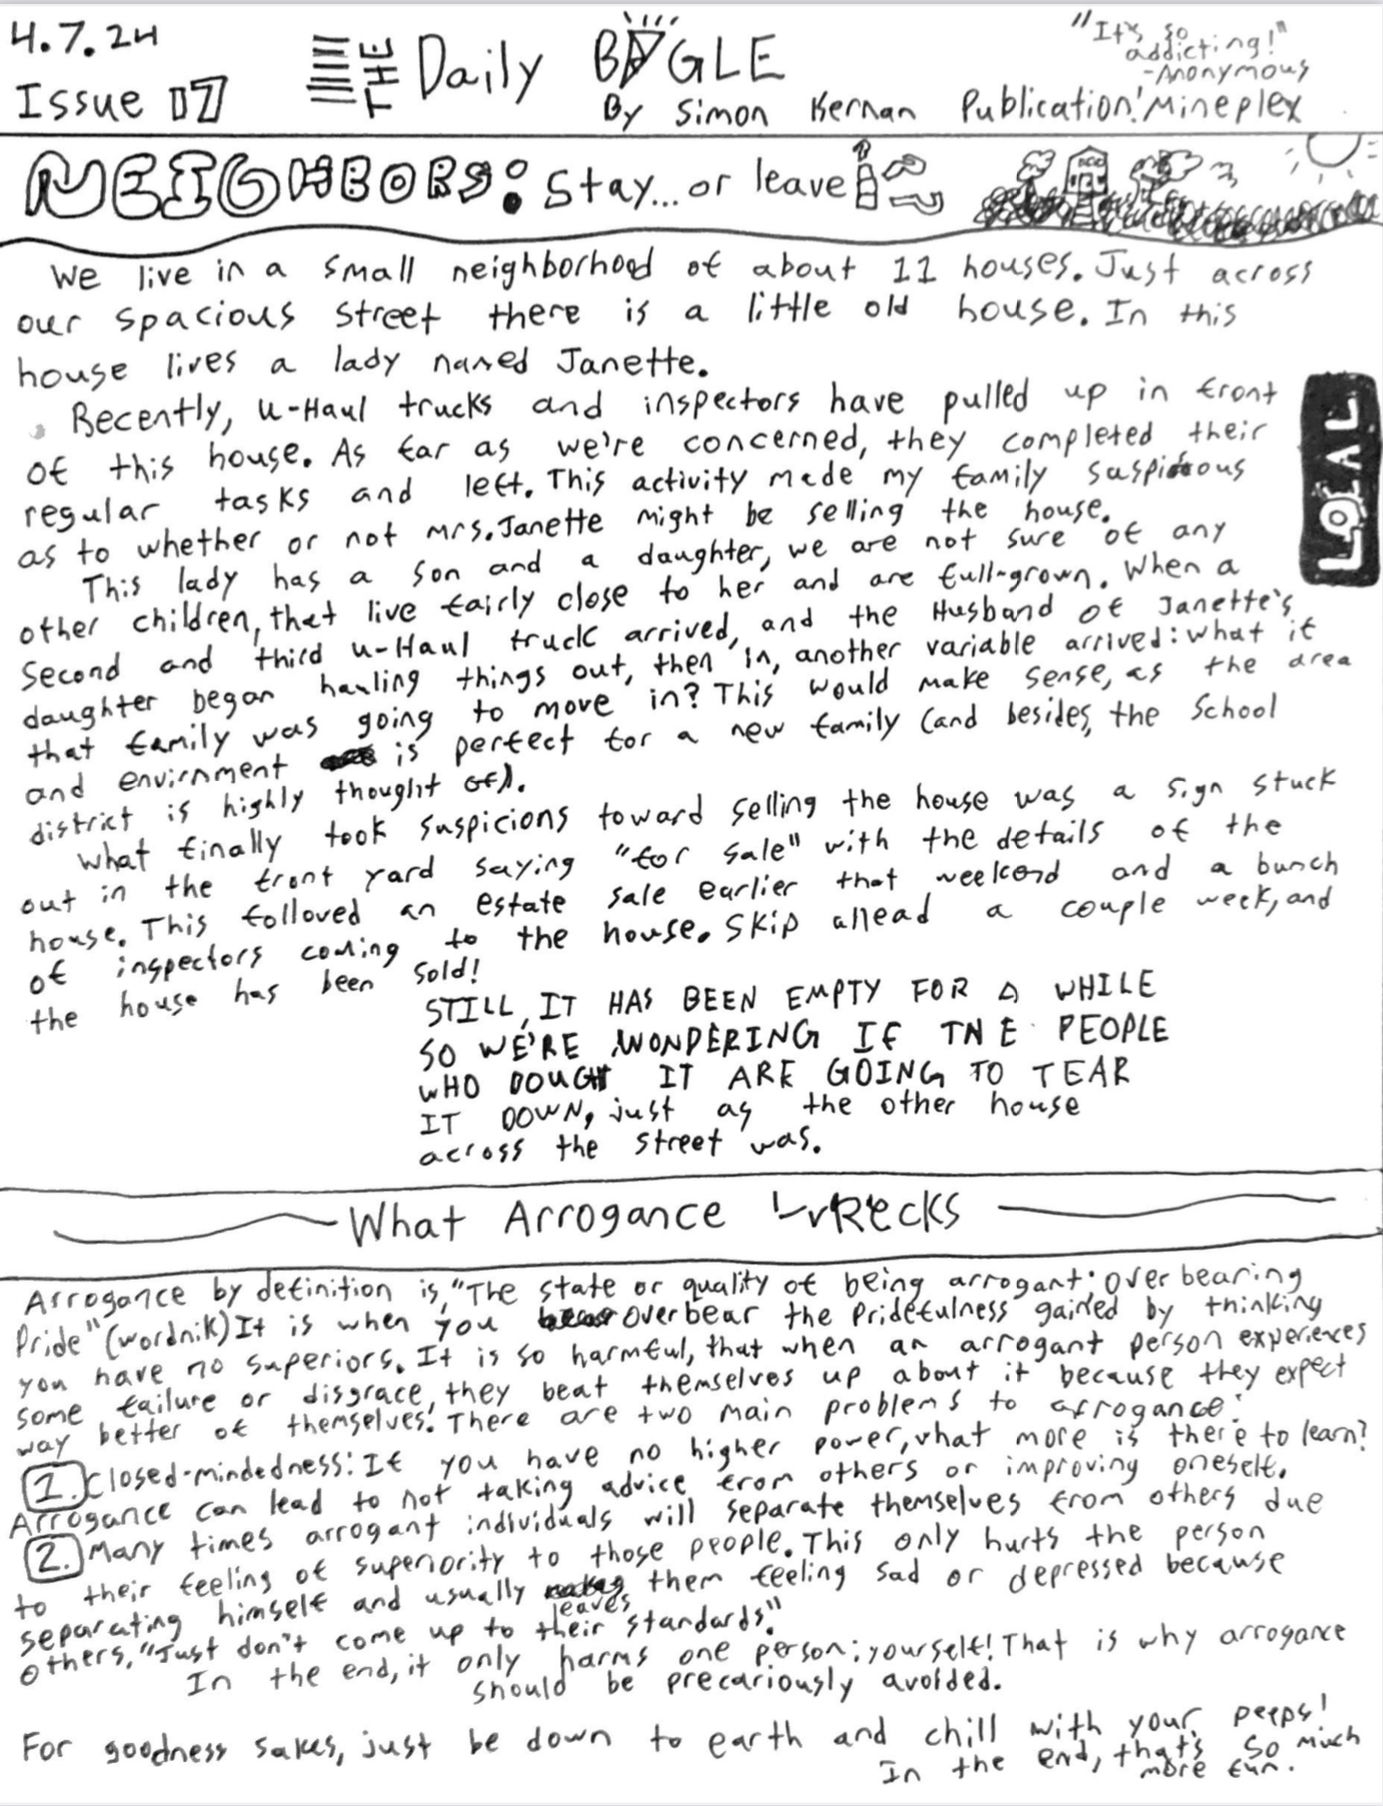 4.7.24
Issue 07
THE Daily BAGLE
By Simon Kernan
"It's so
addicting!"
-Anonymous
Publication: Mineplex
NEIGHBORS: Stay... or leave
We live in a small neighborhood of about 11 houses. Just across
our spacious street there is a little old house. In this
house lives a lady named Janette.
Recently, U-Haul trucks and inspectors have pulled up in front
of this house. As far as we're concerned, they completed their
regular tasks and left. This activity made my family suspicious
as to whether or not mrs. Janette might be selling the house.
This lady has a son and a daughter, we are not sure of any
other children, that live fairly close to her and are full-grown. When a
second and third U-Haul truck arrived, and the Husband of Janette's
daughter began hauling things out, then in, another variable arrived: what if
that family was going to move in? This would make sense, as the area
and envirnment is perfect for a new family (and besides, the School
district is highly thought of).
What finally took suspicions toward selling the house was a sign stuck
out in the front yard saying "for sale" with the details of the
house. This followed an estate sale earlier that weekend and a bunch
of inspectors coming to the house. Skip ahead a couple week, and
the house has been sold!
LOYAL
STILL, IT HAS BEEN EMPTY FOR A WHILE
SO WE'RE WONDERING IF THE PEOPLE
WHO BOUGHT IT ARE GOING TO TEAR
IT DOWN, just as the other house
across the street was.
What Arrogance Wrecks
Arrogance by definition is, "The state or quality of being arrogant; overbearing
Pride" (wordnik) It is when you overbear the Pridefulness gained by thinking
you have no superiors. It is so harmful, that when an arrogant person experiences
some failure or disgrace, they beat themselves up about it because they expect
way better of themselves. There are two main problems to arrogance:
1. Closed-mindedness: If you have no higher power, what more is there to learn?
Arrogance can lead to not taking advice from others or improving oneself.
2. Many times arrogant individuals will separate themselves from others due
to their feeling of superiority to those people. This only hurts the person
separating himself and usually leaves them feeling sad or depressed because
others, "Just don't come up to their standards."
In the end, it only harms one person; yourself! That is why arrogance
should be precariously avoided.
For goodness sakes, just be down to earth and chill with your peeps!
In the end, that's so much
more fun.